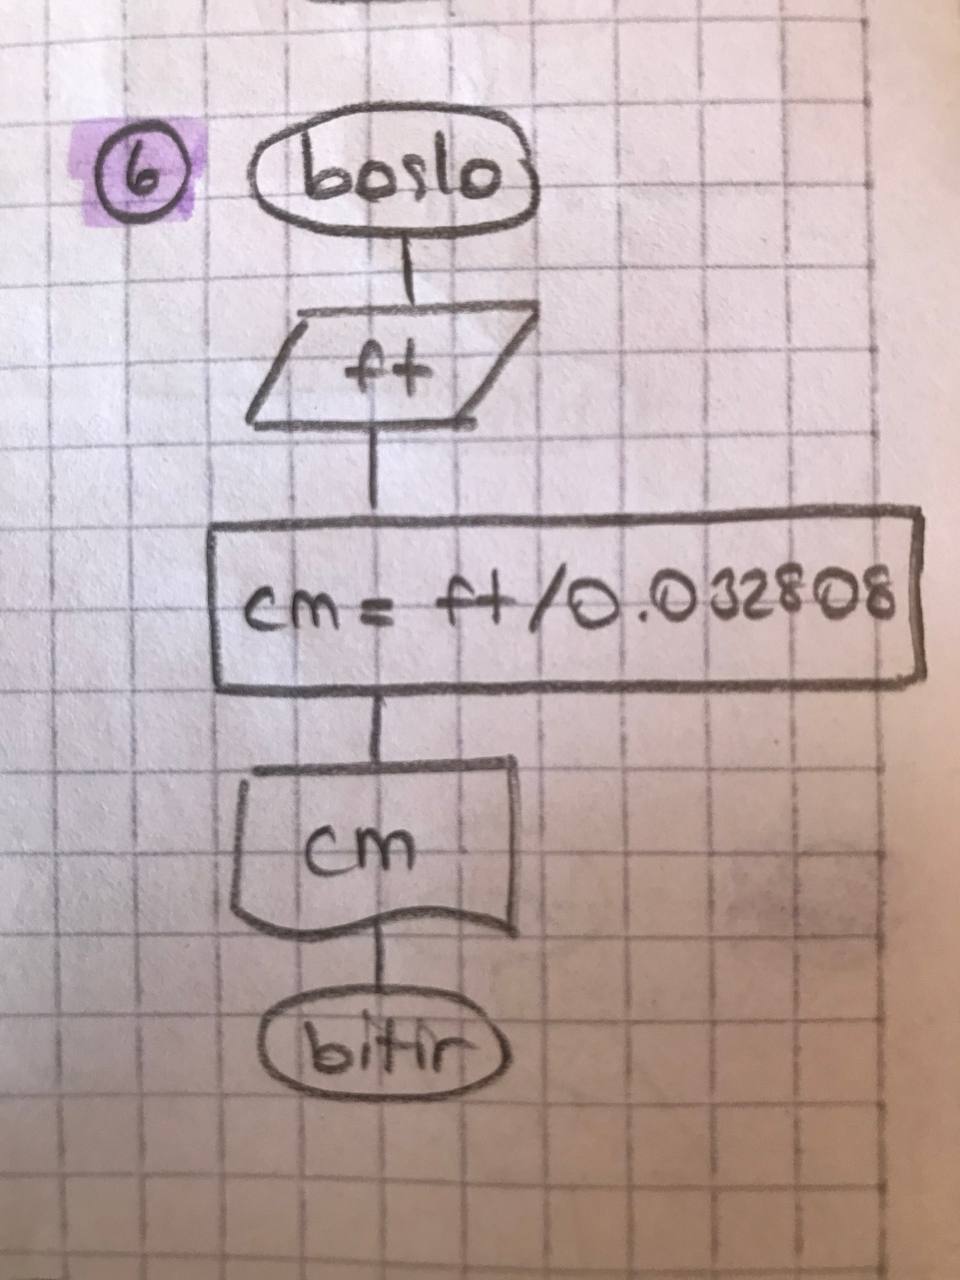 6
başla
ft
cm = ft/0.032808
cm
bitir